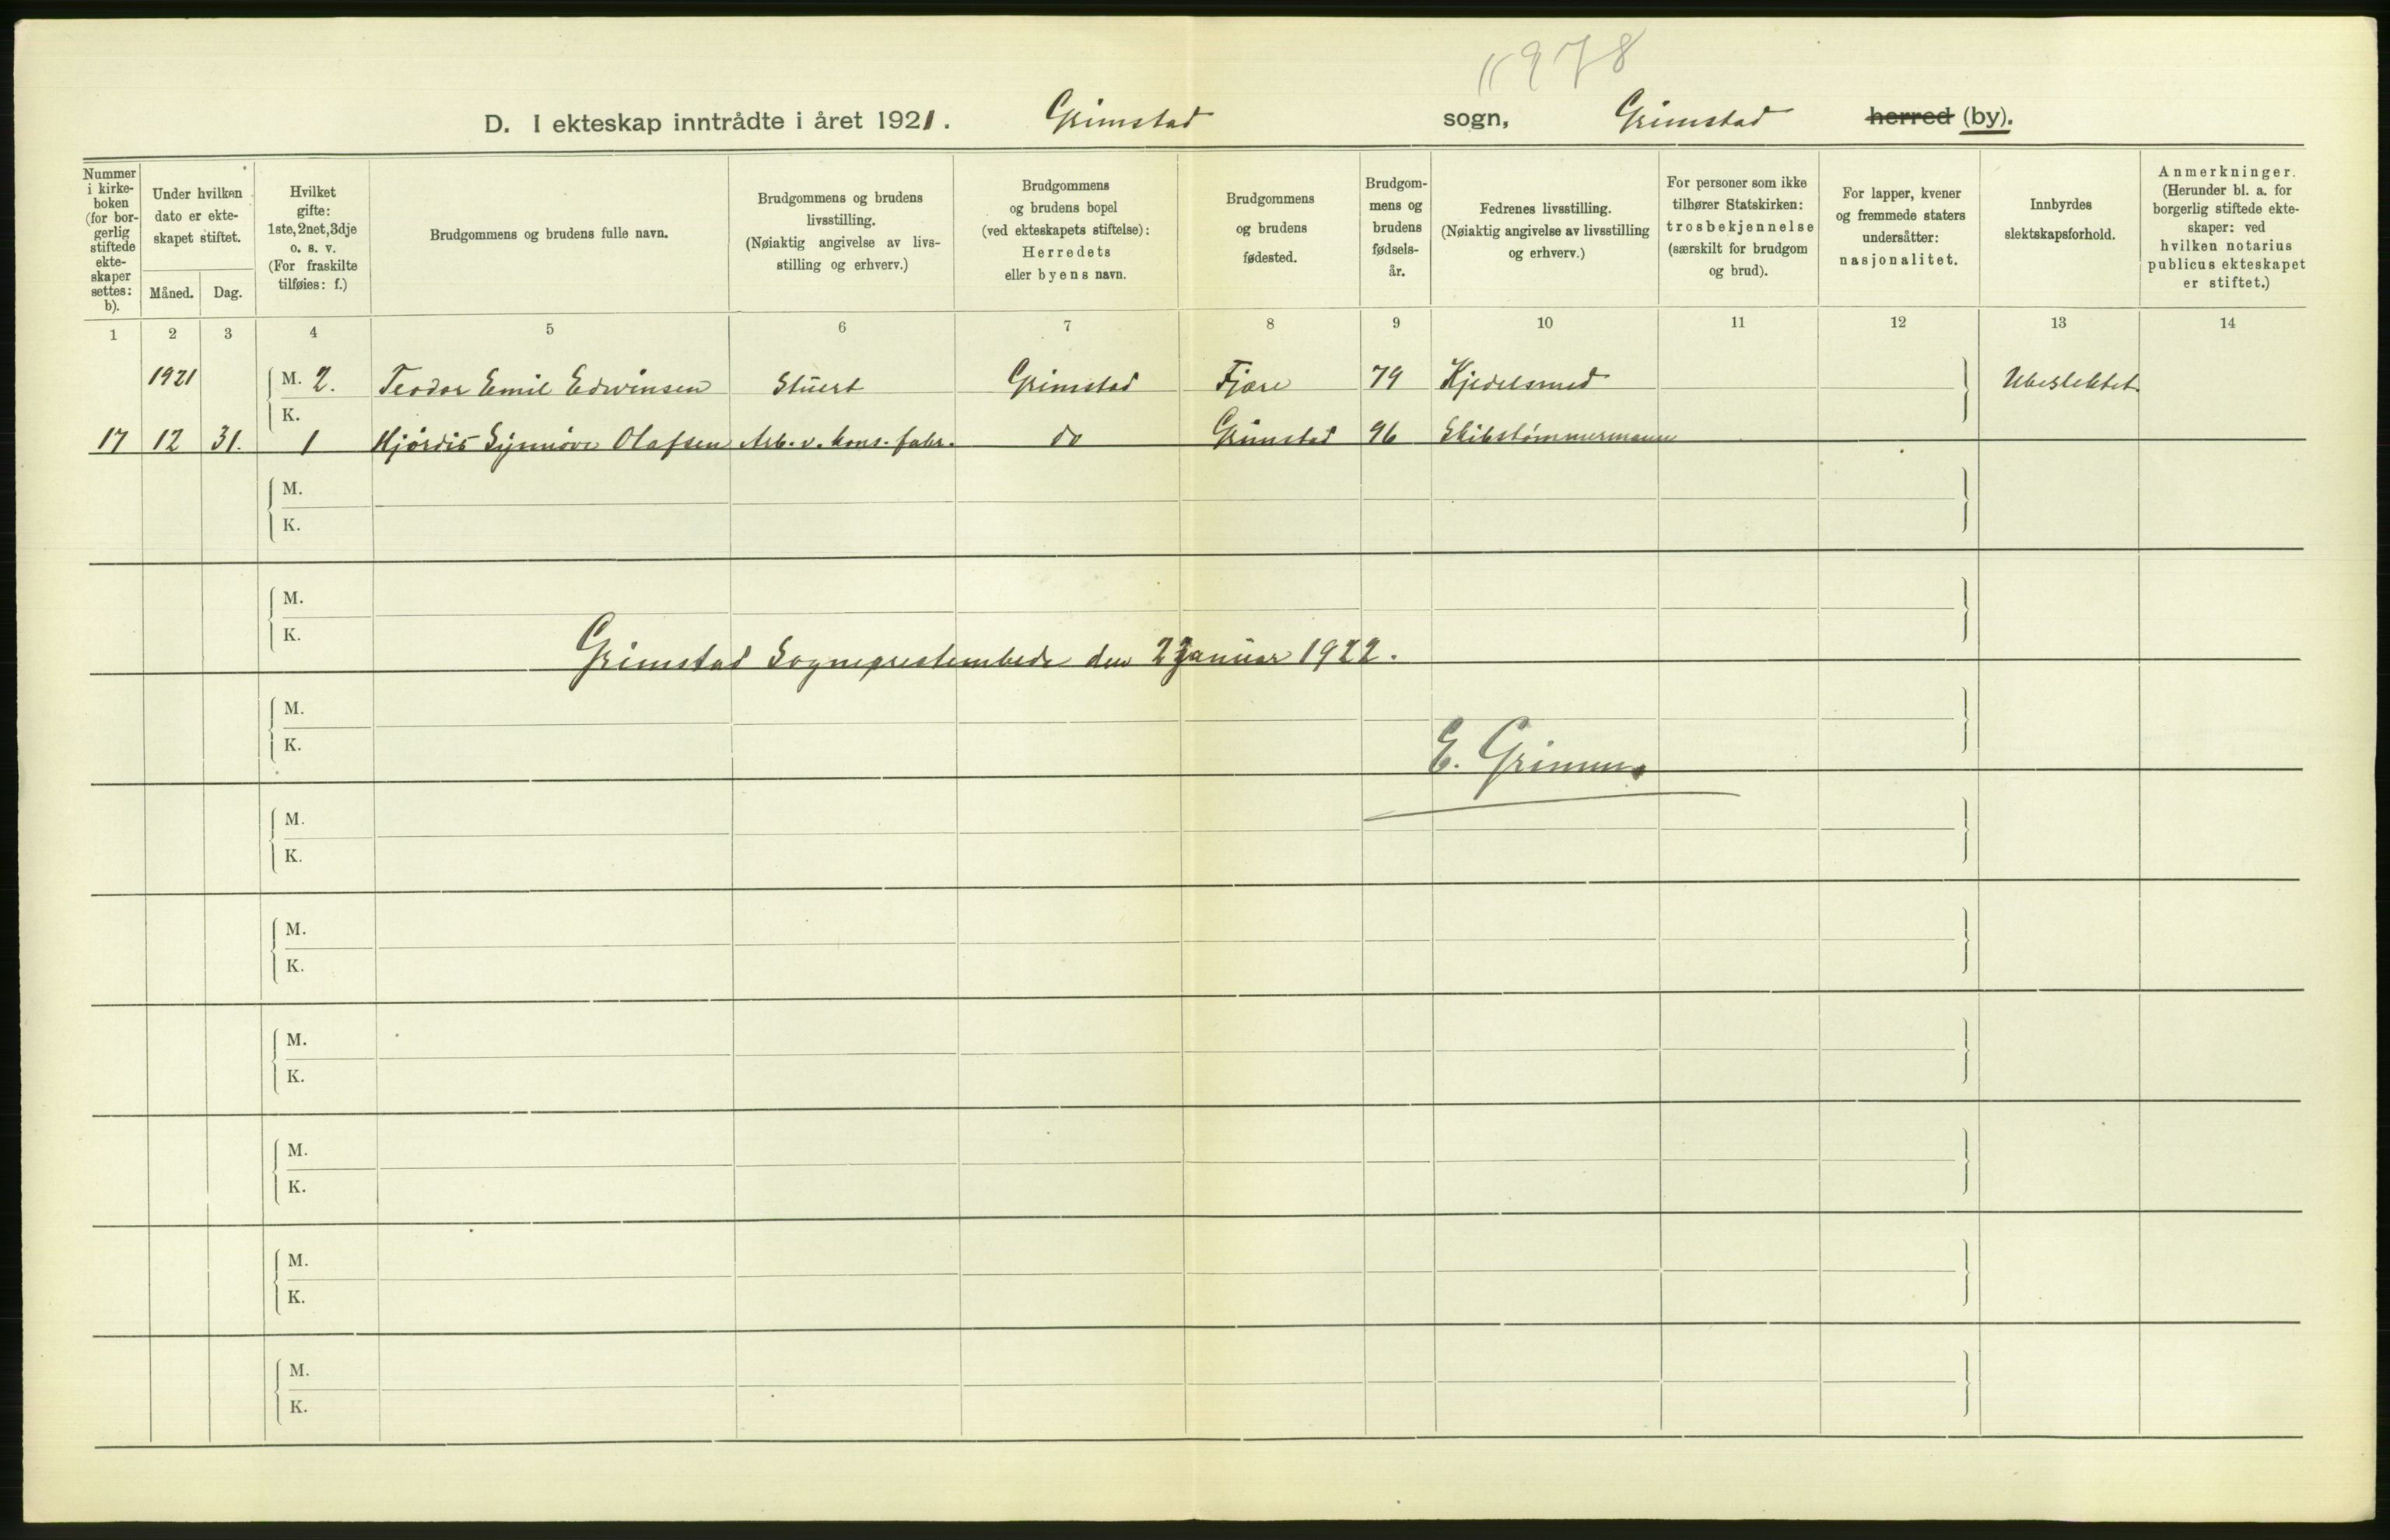 1978
D. I ekteskap inntrådte i året 1921. Grimstad sogn, Grimstad herred (by).
Nummer i kirke-boken (for bor-gerlig stiftede ekte-skaper settes: b).
Under hvilken dato er ekte-skapet stiftet.
Måned. Dag.
Hvilket gifte: 1ste, 2net, 3dje o. s. v. (For fraskilte tilføies: f.)
Brudgommens og brudens fulle navn.
Brudgommens og brudens livsstilling. (Nøiaktig angivelse av livs-stilling og erhverv.)
Brudgommens og brudens bopel (ved ekteskapets stiftelse): Herredets eller byens navn.
Brudgommens og brudens fødested.
Brudgom-mens og brudens fødsels-år.
Fedrenes livsstilling. (Nøiaktig angivelse av livsstilling og erhverv.)
For personer som ikke tilhører Statskirken: trosbekjennelse (særskilt for brudgom og brud).
For lapper, kvener og fremmede staters undersåtter: nasjonalitet.
Innbyrdes slektskapsforhold.
Anmerkninger. (Herunder bl. a. for borgerlig stiftede ekte-skaper: ved hvilken notarius publicus ekteskapet er stiftet.)
1 2 3 4 5 6 7 8 9 10 11 12 13 14
1921 M. 2. Teodor Emil Edwinsen Stuert Grimstad Fjære 79 Kjedelsmed Ubeslektet.
K.
17 12 31. 1 Hjördis Synnöve Olafsen Arb. v. kons. fabr. do Grimstad 96 Skibstømmermann
M.
K.
M.
K.
Grimstad Sogneprestembede den 2 Januar 1922.
M.
K.
E. Grimnes
M.
K.
M.
K.
M.
K.
M.
K.
M.
K.
M.
K.